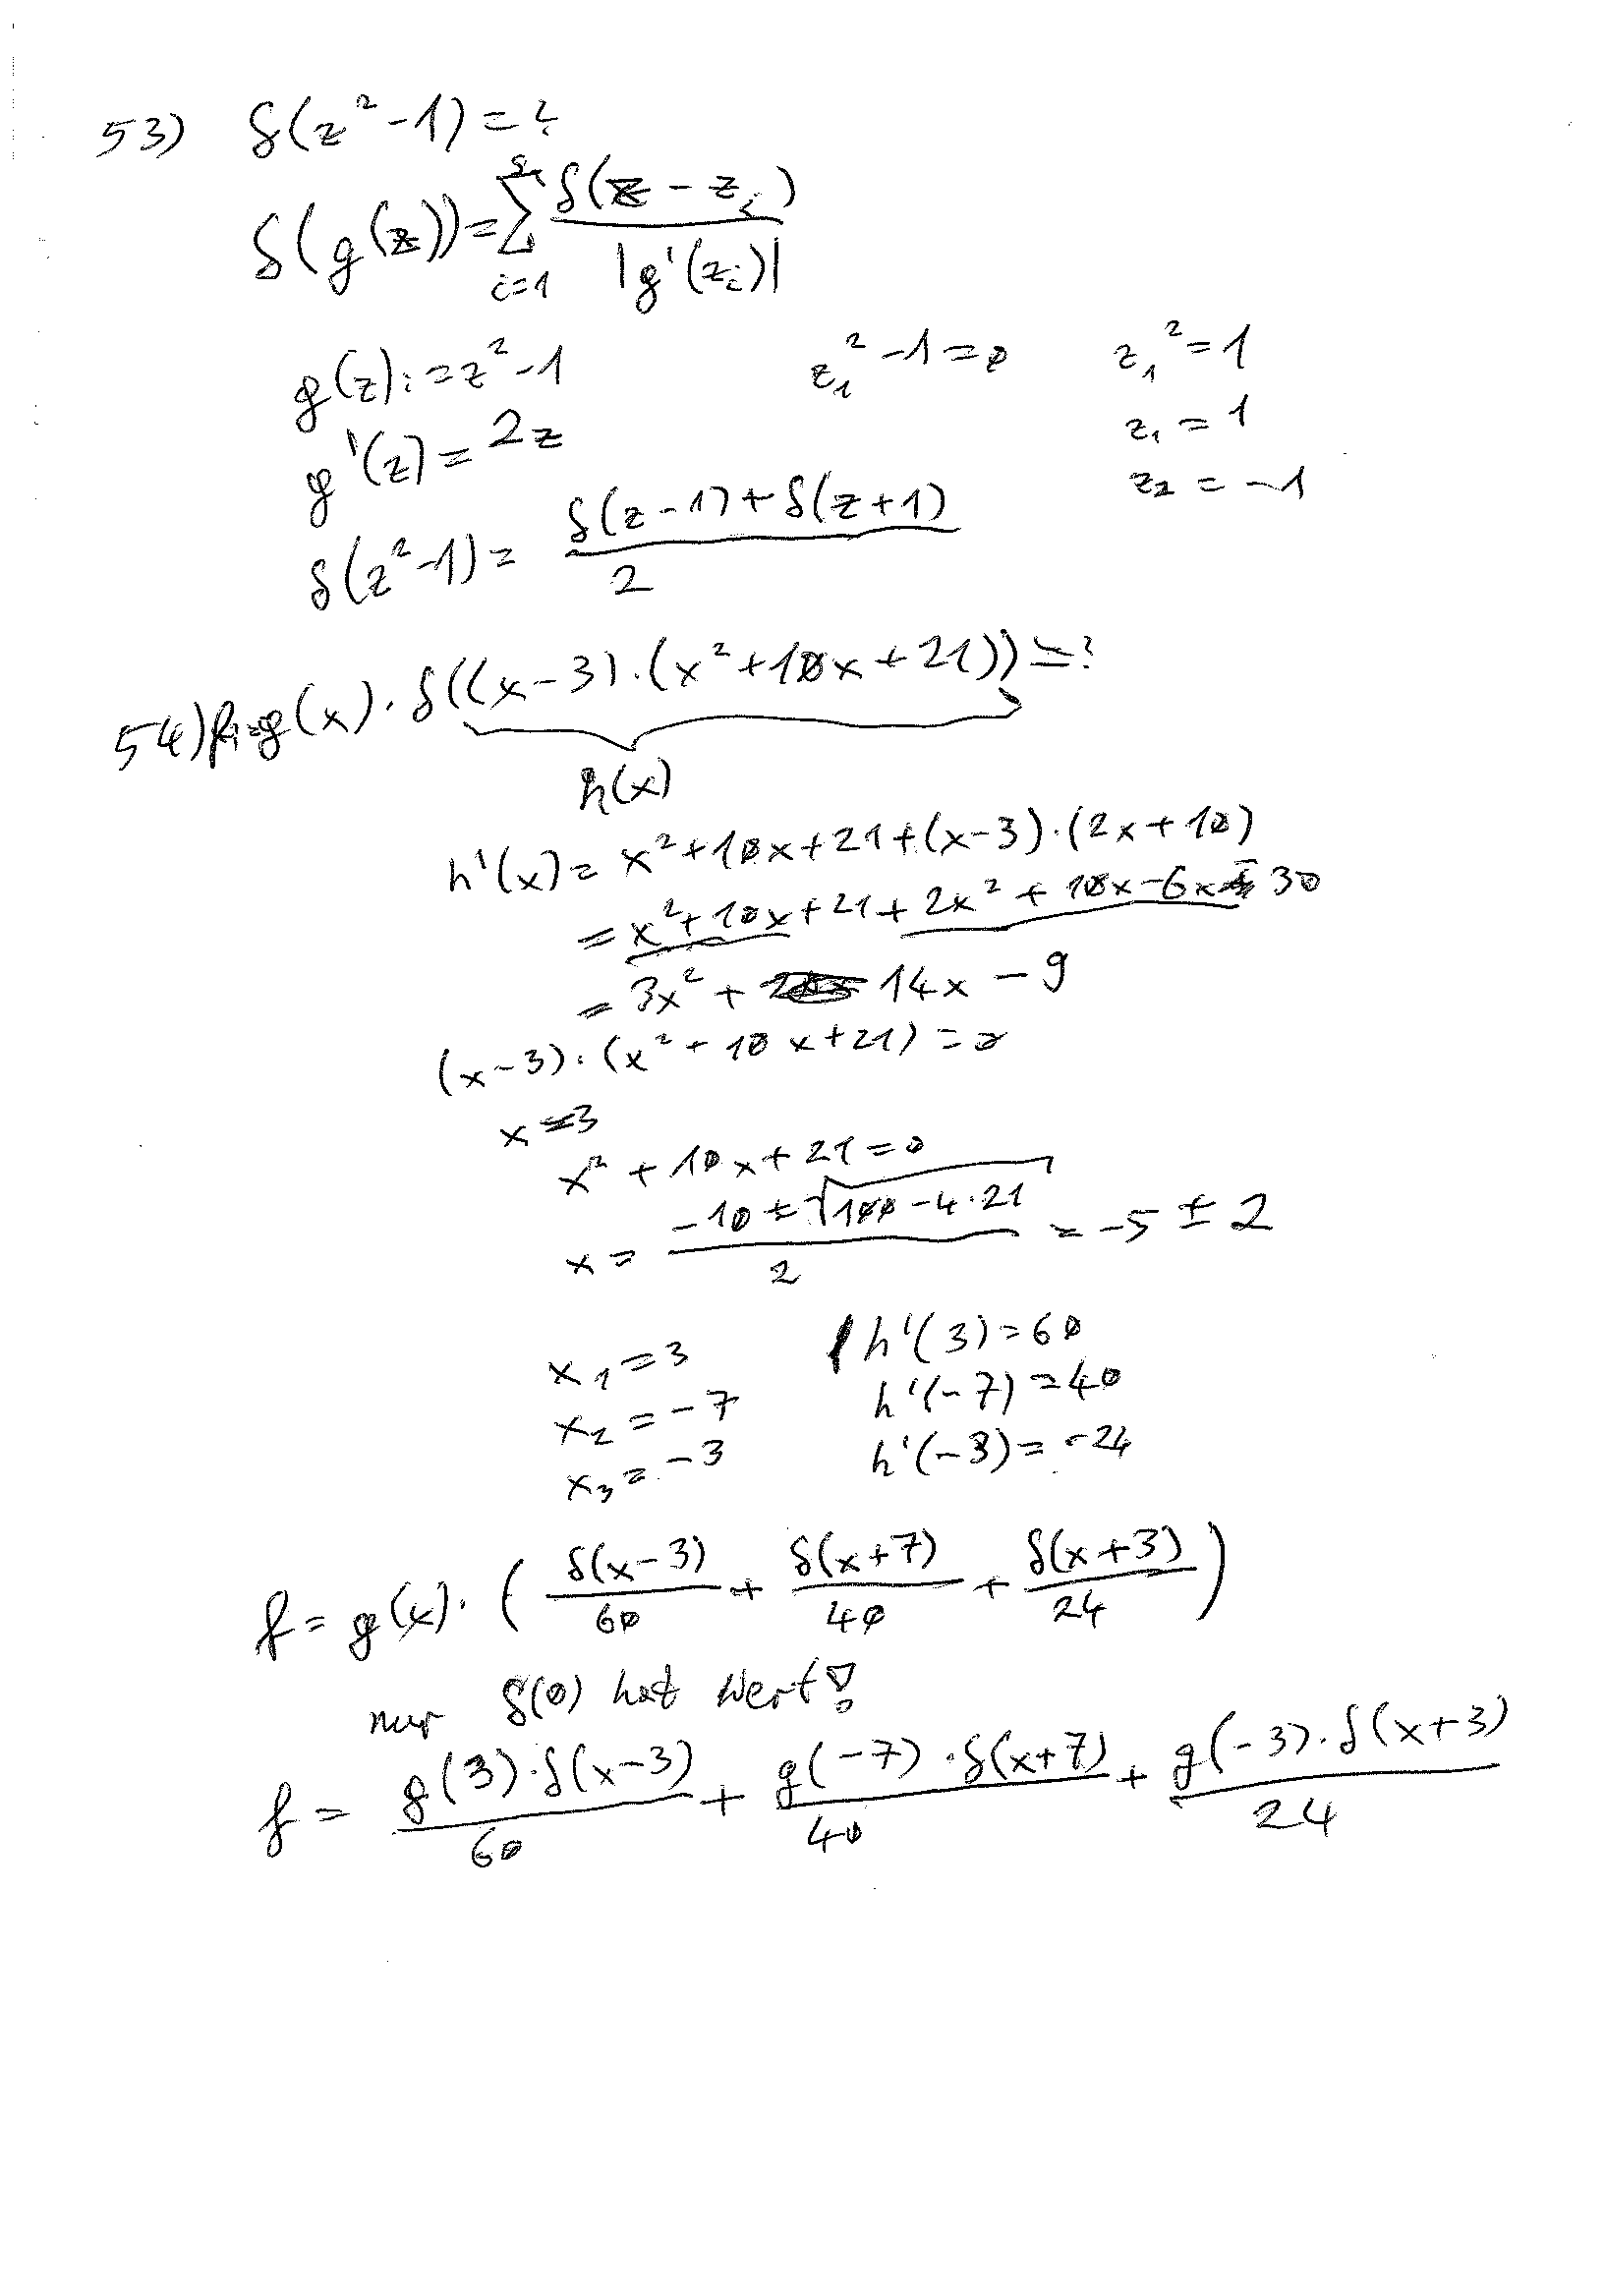 53) δ(z²-1)=?
δ(g(z))=∑_{i=1}^{n} δ(z-z_i)/|g'(z_i)|
g(z):=z²-1   z₁²-1=0   z₁²=1
g'(z)=2z   z₁=1
z₂=-1
δ(z²-1)= (δ(z-1)+δ(z+1))/2
54) f:=g(x)·δ((x-3)·(x²+10x+21))=?
h(x)
h'(x)=x²+10x+21+(x-3)·(2x+10)
=x²+10x+21+2x²+10x-6x-30
=3x²+14x-9
(x-3)·(x²+10x+21)=0
x=3
x²+10x+21=0
x=(-10±√(100-4·21))/2=-5±2
x₁=3   h'(3)=60
x₂=-7   h'(-7)=40
x₃=-3   h'(-3)=-24
f=g(x)·(δ(x-3)/60+δ(x+7)/40+δ(x+3)/24)
nur δ(0) hat Wert!
f=g(3)·δ(x-3)/60+g(-7)·δ(x+7)/40+g(-3)·δ(x+3)/24